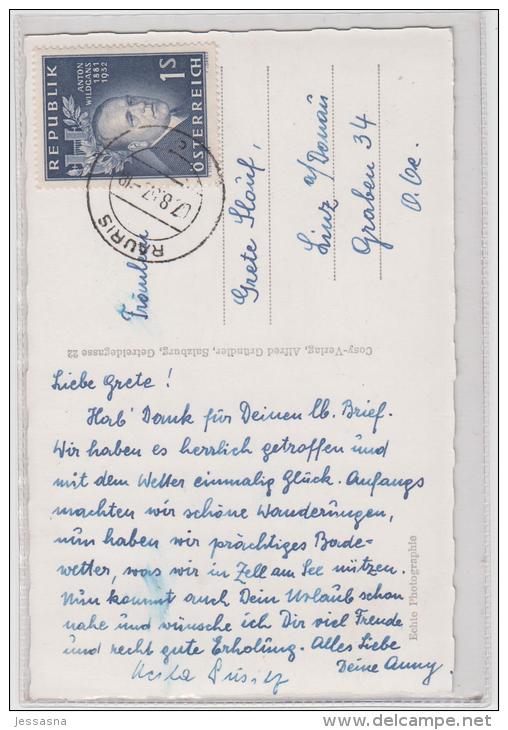 REPUBLIK
ANTON
WILDGANS
1881
1932
1S
ÖSTERREICH
RAURIS
Fräulein
Grete
Linz a/Donau
Graben 34
O.Oe.
Cosy-Verlag, Alfred Gründler, Salzburg, Getreidegasse 22
Liebe Grete!
Hab' Dank für Deinen lb. Brief.
Wir haben es herrlich getroffen und
mit dem Wetter einmalig Glück. Anfangs
machten wir schöne Wanderungen,
nun haben wir prächtiges Bade-
wetter, was wir in Zell am See nützen.
Nun kommt auch Dein Urlaub schon
nahe und wünsche ich Dir viel Freude
und recht gute Erholung. Alles Liebe
Deine Anny.
Echte Photographie
jessasna
www.delcampe.net